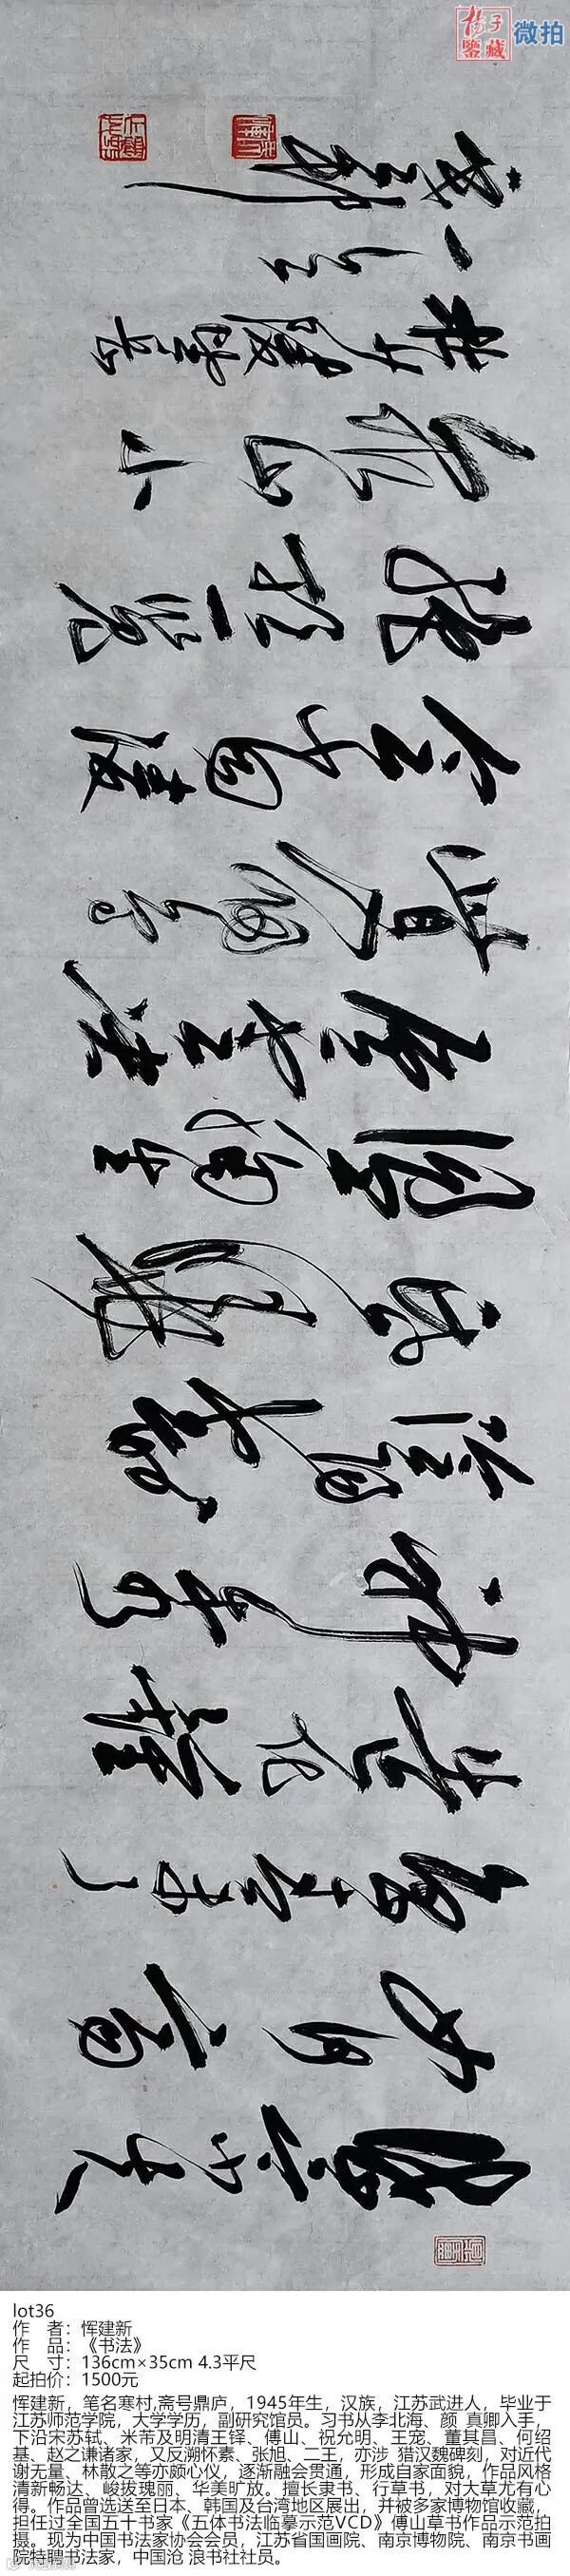 杨子
鉴藏
微拍
岱宗夫
如何齊
魯青未了
造化鍾
神秀
陰陽割
昏曉盪
胸生
層雲決
眥入歸鳥
會當凌
絕頂一覽
眾山小
杜少陵望岳
一首
寒邨
lot36
作 者：恽建新
作 品：《书法》
尺 寸：136cm×35cm 4.3平尺
起拍价：1500元
恽建新，笔名寒村,斋号鼎庐，1945年生，汉族，江苏武进人，毕业于
江苏师范学院，大学学历，副研究馆员。习书从李北海、颜 真卿入手，
下沿宋苏轼、米芾及明清王铎、傅山、祝允明、王宠、董其昌、何绍
基、赵之谦诸家，又反溯怀素、张旭、二王，亦涉 猎汉魏碑刻，对近代
谢无量、林散之等亦颇心仪，逐渐融会贯通，形成自家面貌，作品风格
清新畅达、峻拔瑰丽、华美旷放。擅长隶书、行草书，对大草尤有心
得。作品曾选送至日本、韩国及台湾地区展出，并被多家博物馆收藏，
担任过全国五十书家《五体书法临摹示范VCD》傅山草书作品示范拍
摄。现为中国书法家协会会员，江苏省国画院、南京博物院、南京书画
院特聘书法家，中国沧 浪书社社员。